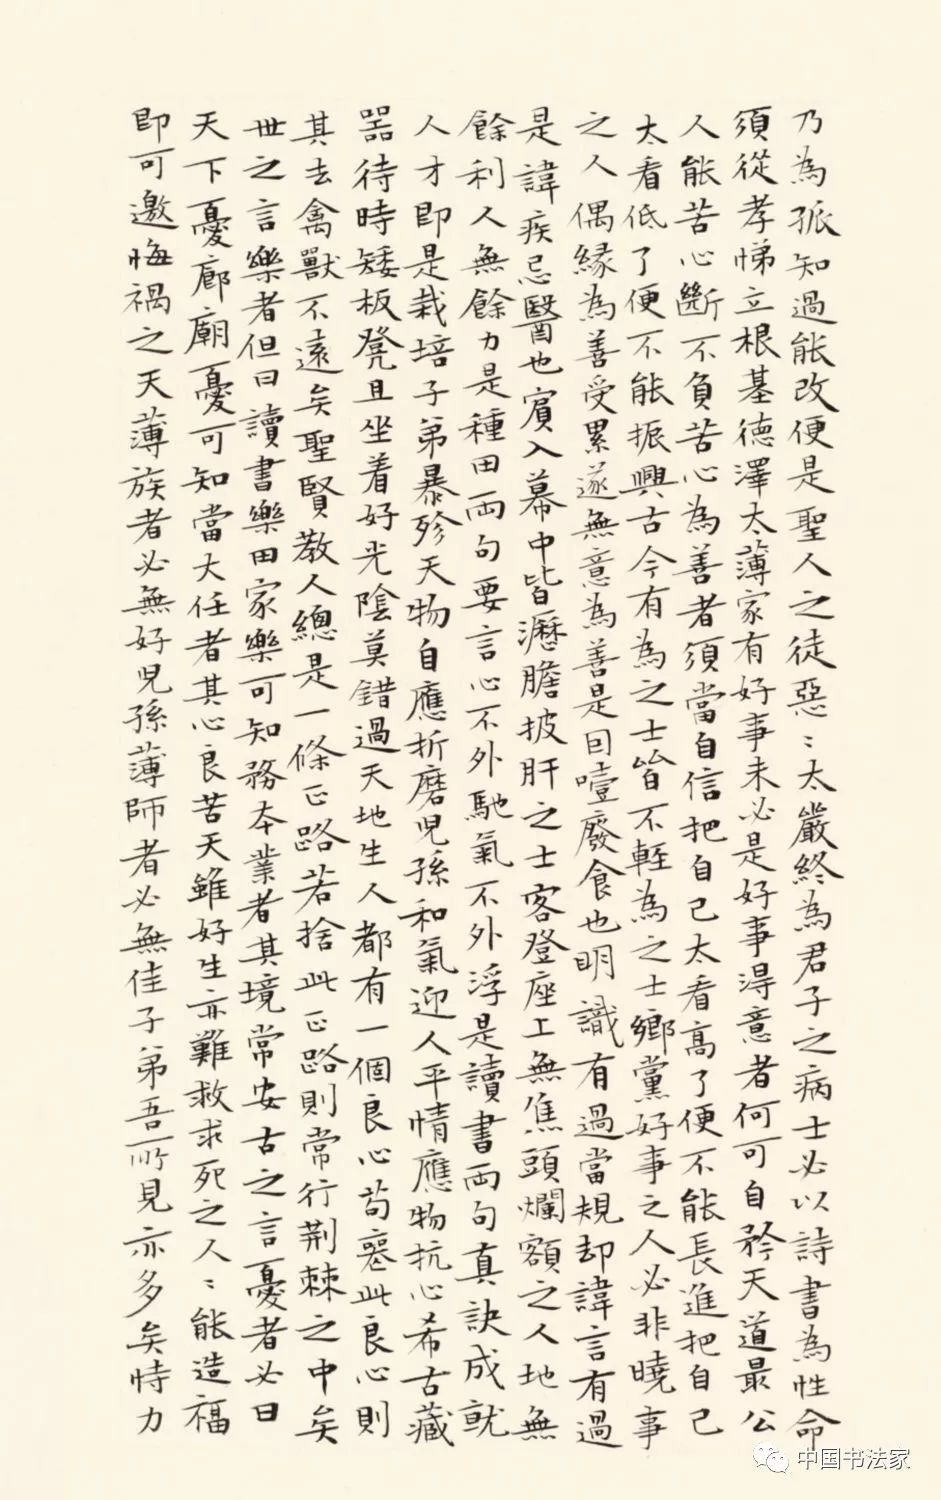 乃為孤知過能改便是聖人之徒惡〻太嚴終為君子之病士必以詩書為性命
須從孝悌立根基德澤太薄家有好事未必是好事得意者何可自矜天道最公
人能苦心斷不負苦心為善者須當自信把自己太看高了便不能長進把自己
太看低了便不能振興古今有為之士皆不輕為之士鄉黨好事之人必非曉事
之人偶緣為善受累遂無意為善是因噎廢食也明識有過當規却諱言有過
是諱疾忌醫也賓入幕中皆瀝膽披肝之士客登座上無焦頭爛額之人地無
餘利人無餘力是種田兩句要言心不外馳氣不外浮是讀書兩句真訣成就
人才即是栽培子弟暴殄天物自應折磨兒孫和氣迎人平情應物抗心希古藏
器待時矮板凳且坐着好光陰莫錯過天地生人都有一個良心苟喪此良心則
其去禽獸不遠矣聖賢教人總是一條正路若捨此正路則常行荆棘之中矣
世之言樂者但曰讀書樂田家樂可知務本業者其境常安古之言憂者必曰
天下憂廊廟憂可知當大任者其心良苦天雖好生亦難救求死之人〻能造福
即可邀悔禍之天薄族者必無好兒孫薄師者必無佳子弟吾所見亦多矣恃力
中国书法家